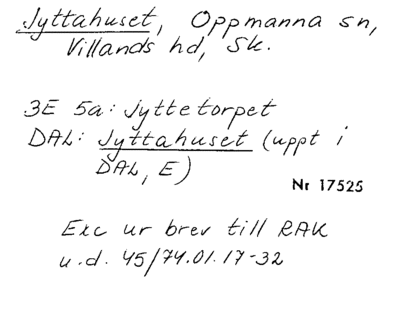 Jyttahuset, Oppmanna sn,
Villands hd, Sk.
3E 5a: Jyttetorpet
DAL: Jyttahuset (uppt i
DAL, E)
Nr 17525
Exc ur brev till RAK
u.d. 45/74.01.17-32